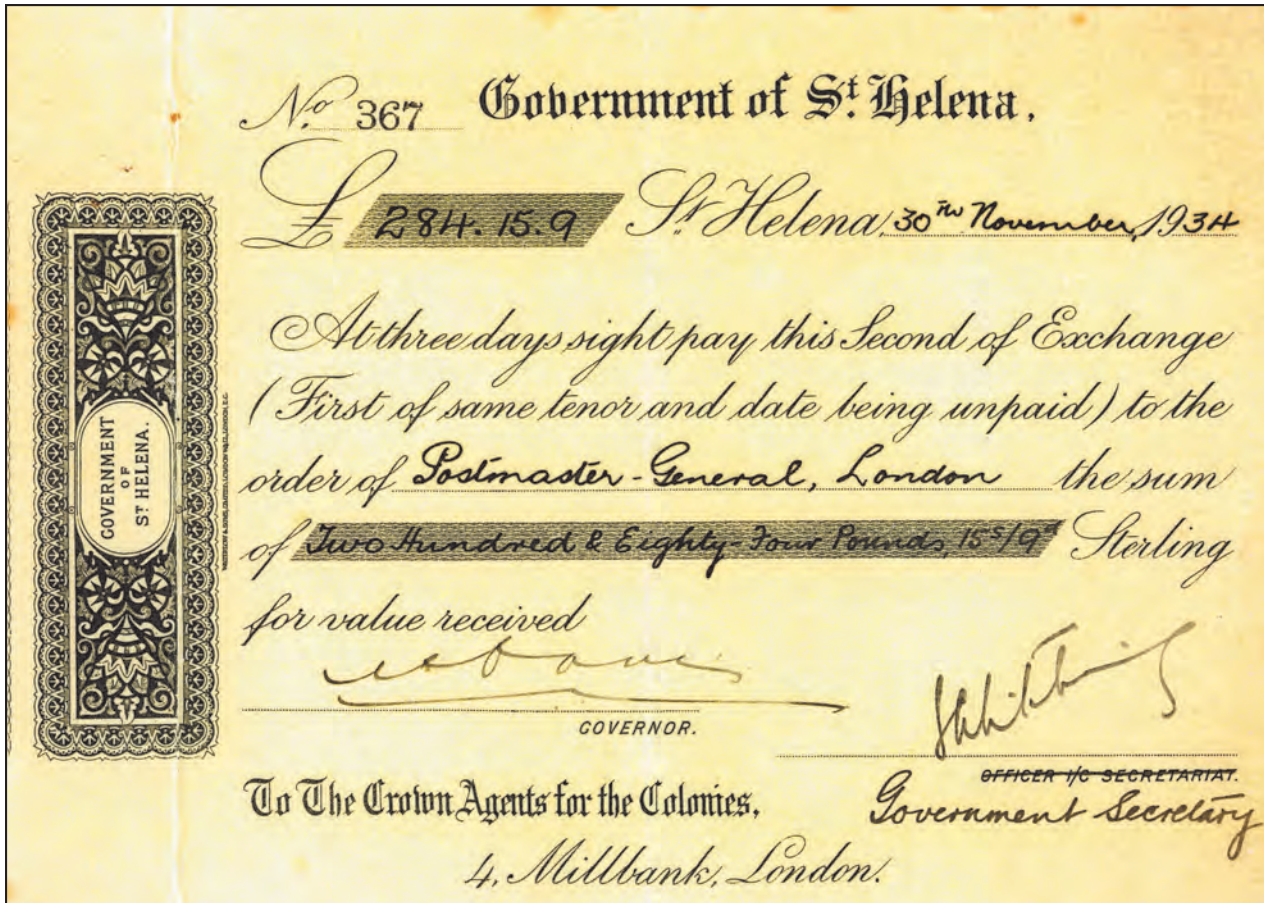 No 367 Government of St. Helena.
£ 284.15.9 St. Helena, 30th November, 1934
At three days sight pay this Second of Exchange
(First of same tenor and date being unpaid) to the
order of Postmaster-General, London the sum
of Two Hundred & Eighty-Four Pounds, 15s/9d Sterling
for value received
GOVERNOR.
OFFICER I/C SECRETARIAT.
Government Secretary
To The Crown Agents for the Colonies,
4, Millbank, London.
GOVERNMENT
OF
ST HELENA.